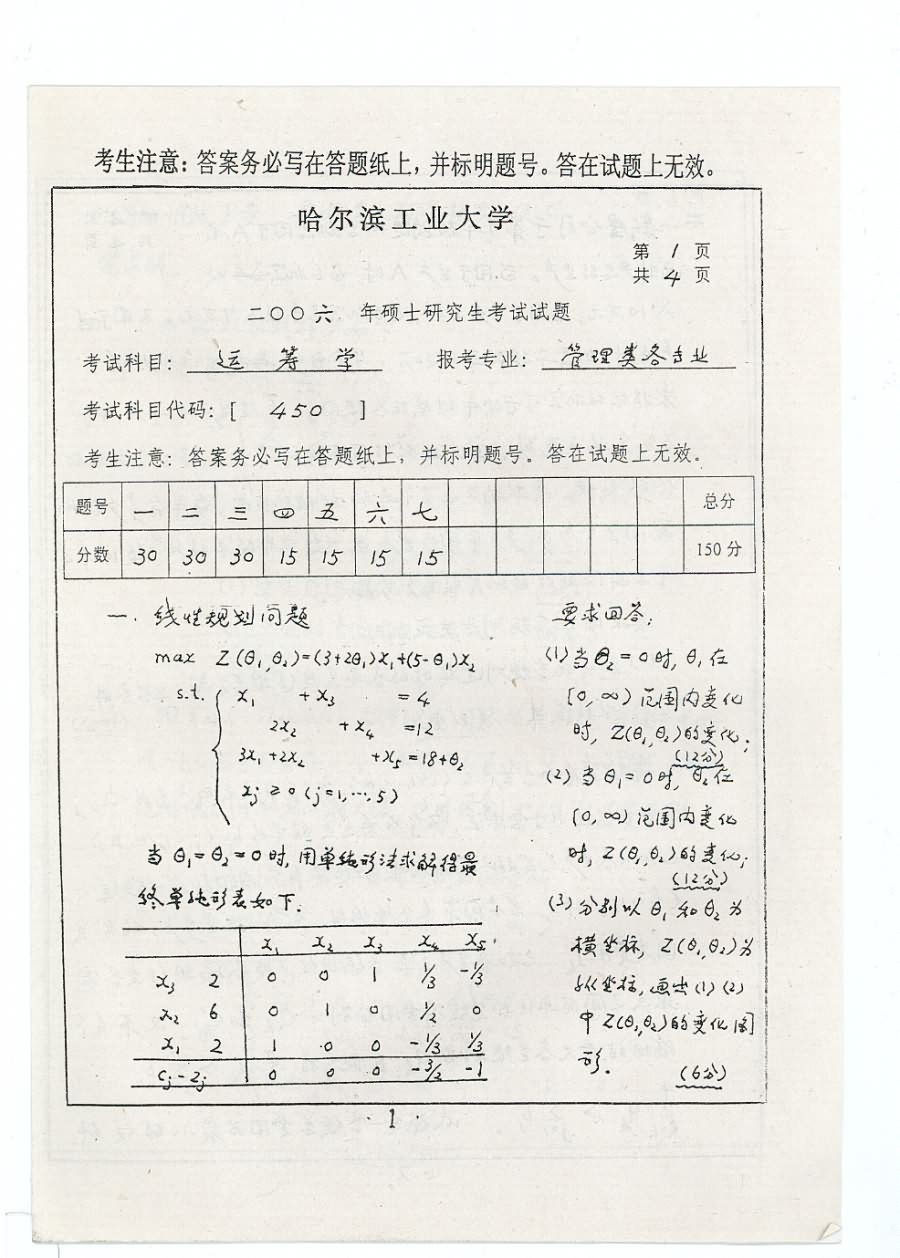 考生注意：答案务必写在答题纸上，并标明题号。答在试题上无效。
哈尔滨工业大学
第 1 页
共 4 页
二〇〇六 年硕士研究生考试试题
考试科目： 运筹学 报考专业： 管理类各专业
考试科目代码：[ 450 ]
考生注意：答案务必写在答题纸上，并标明题号。答在试题上无效。
题号 一 二 三 四 五 六 七 总分
分数 30 30 30 15 15 15 15 150分
一. 线性规划问题
max Z(θ₁,θ₂)=(3+2θ₁)x₁+(5-θ₁)x₂
s.t. { x₁ +x₃ =4
2x₂ +x₄ =12
3x₁+2x₂ +x₅=18+θ₂
xⱼ≥0 (j=1,…,5)
当θ₁=θ₂=0时, 用单纯形法求解得最
终单纯形表如下.
x₁ x₂ x₃ x₄ x₅
x₃ 2 0 0 1 1/3 -1/3
x₂ 6 0 1 0 1/2 0
x₁ 2 1 0 0 -1/3 1/3
cⱼ-zⱼ 0 0 0 -3/2 -1
要求回答;
(1) 当θ₂=0时, θ₁在
[0,∞) 范围内变化
时, Z(θ₁,θ₂)的变化;
(12分)
(2) 当θ₁=0时, θ₂在
[0,∞) 范围内变化
时, Z(θ₁,θ₂)的变化;
(12分)
(3) 分别以θ₁和θ₂为
横坐标, Z(θ₁,θ₂)为
纵坐标, 画出(1)(2)
中Z(θ₁,θ₂)的变化图
形.
(6分)
· 1 ·